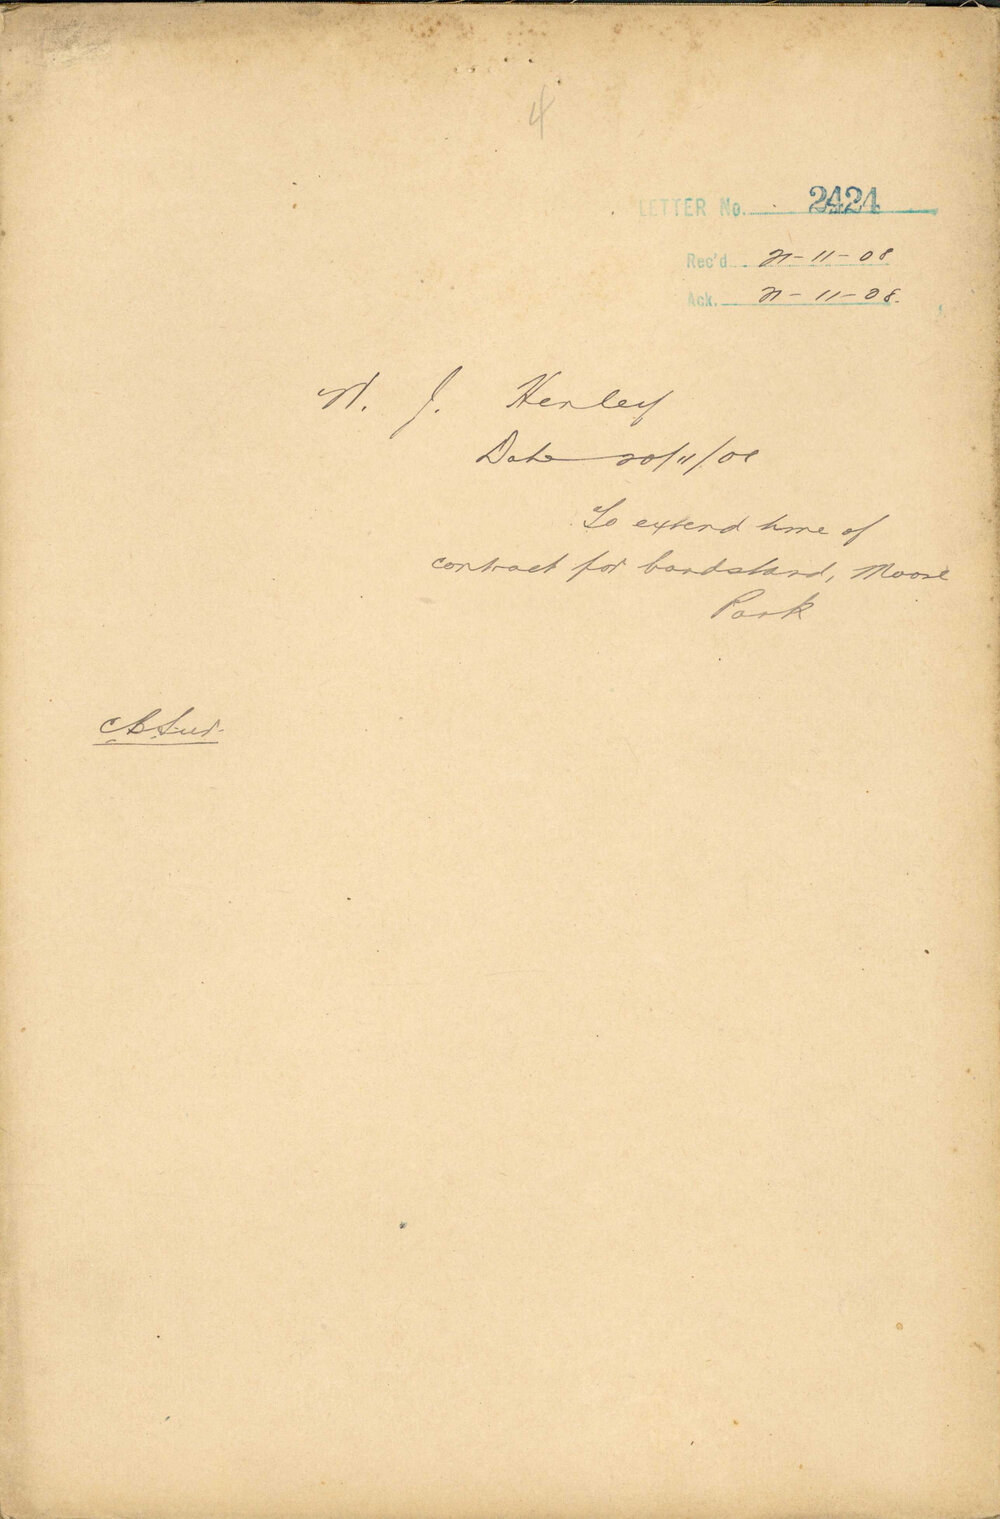 4
LETTER No. 2424
Rec'd 21-11-08
Ack. 21-11-08.
W. J. Henley
Date 20/11/08
To extend time of
contract for bandstand, Moore
Park
C.B.Sur.